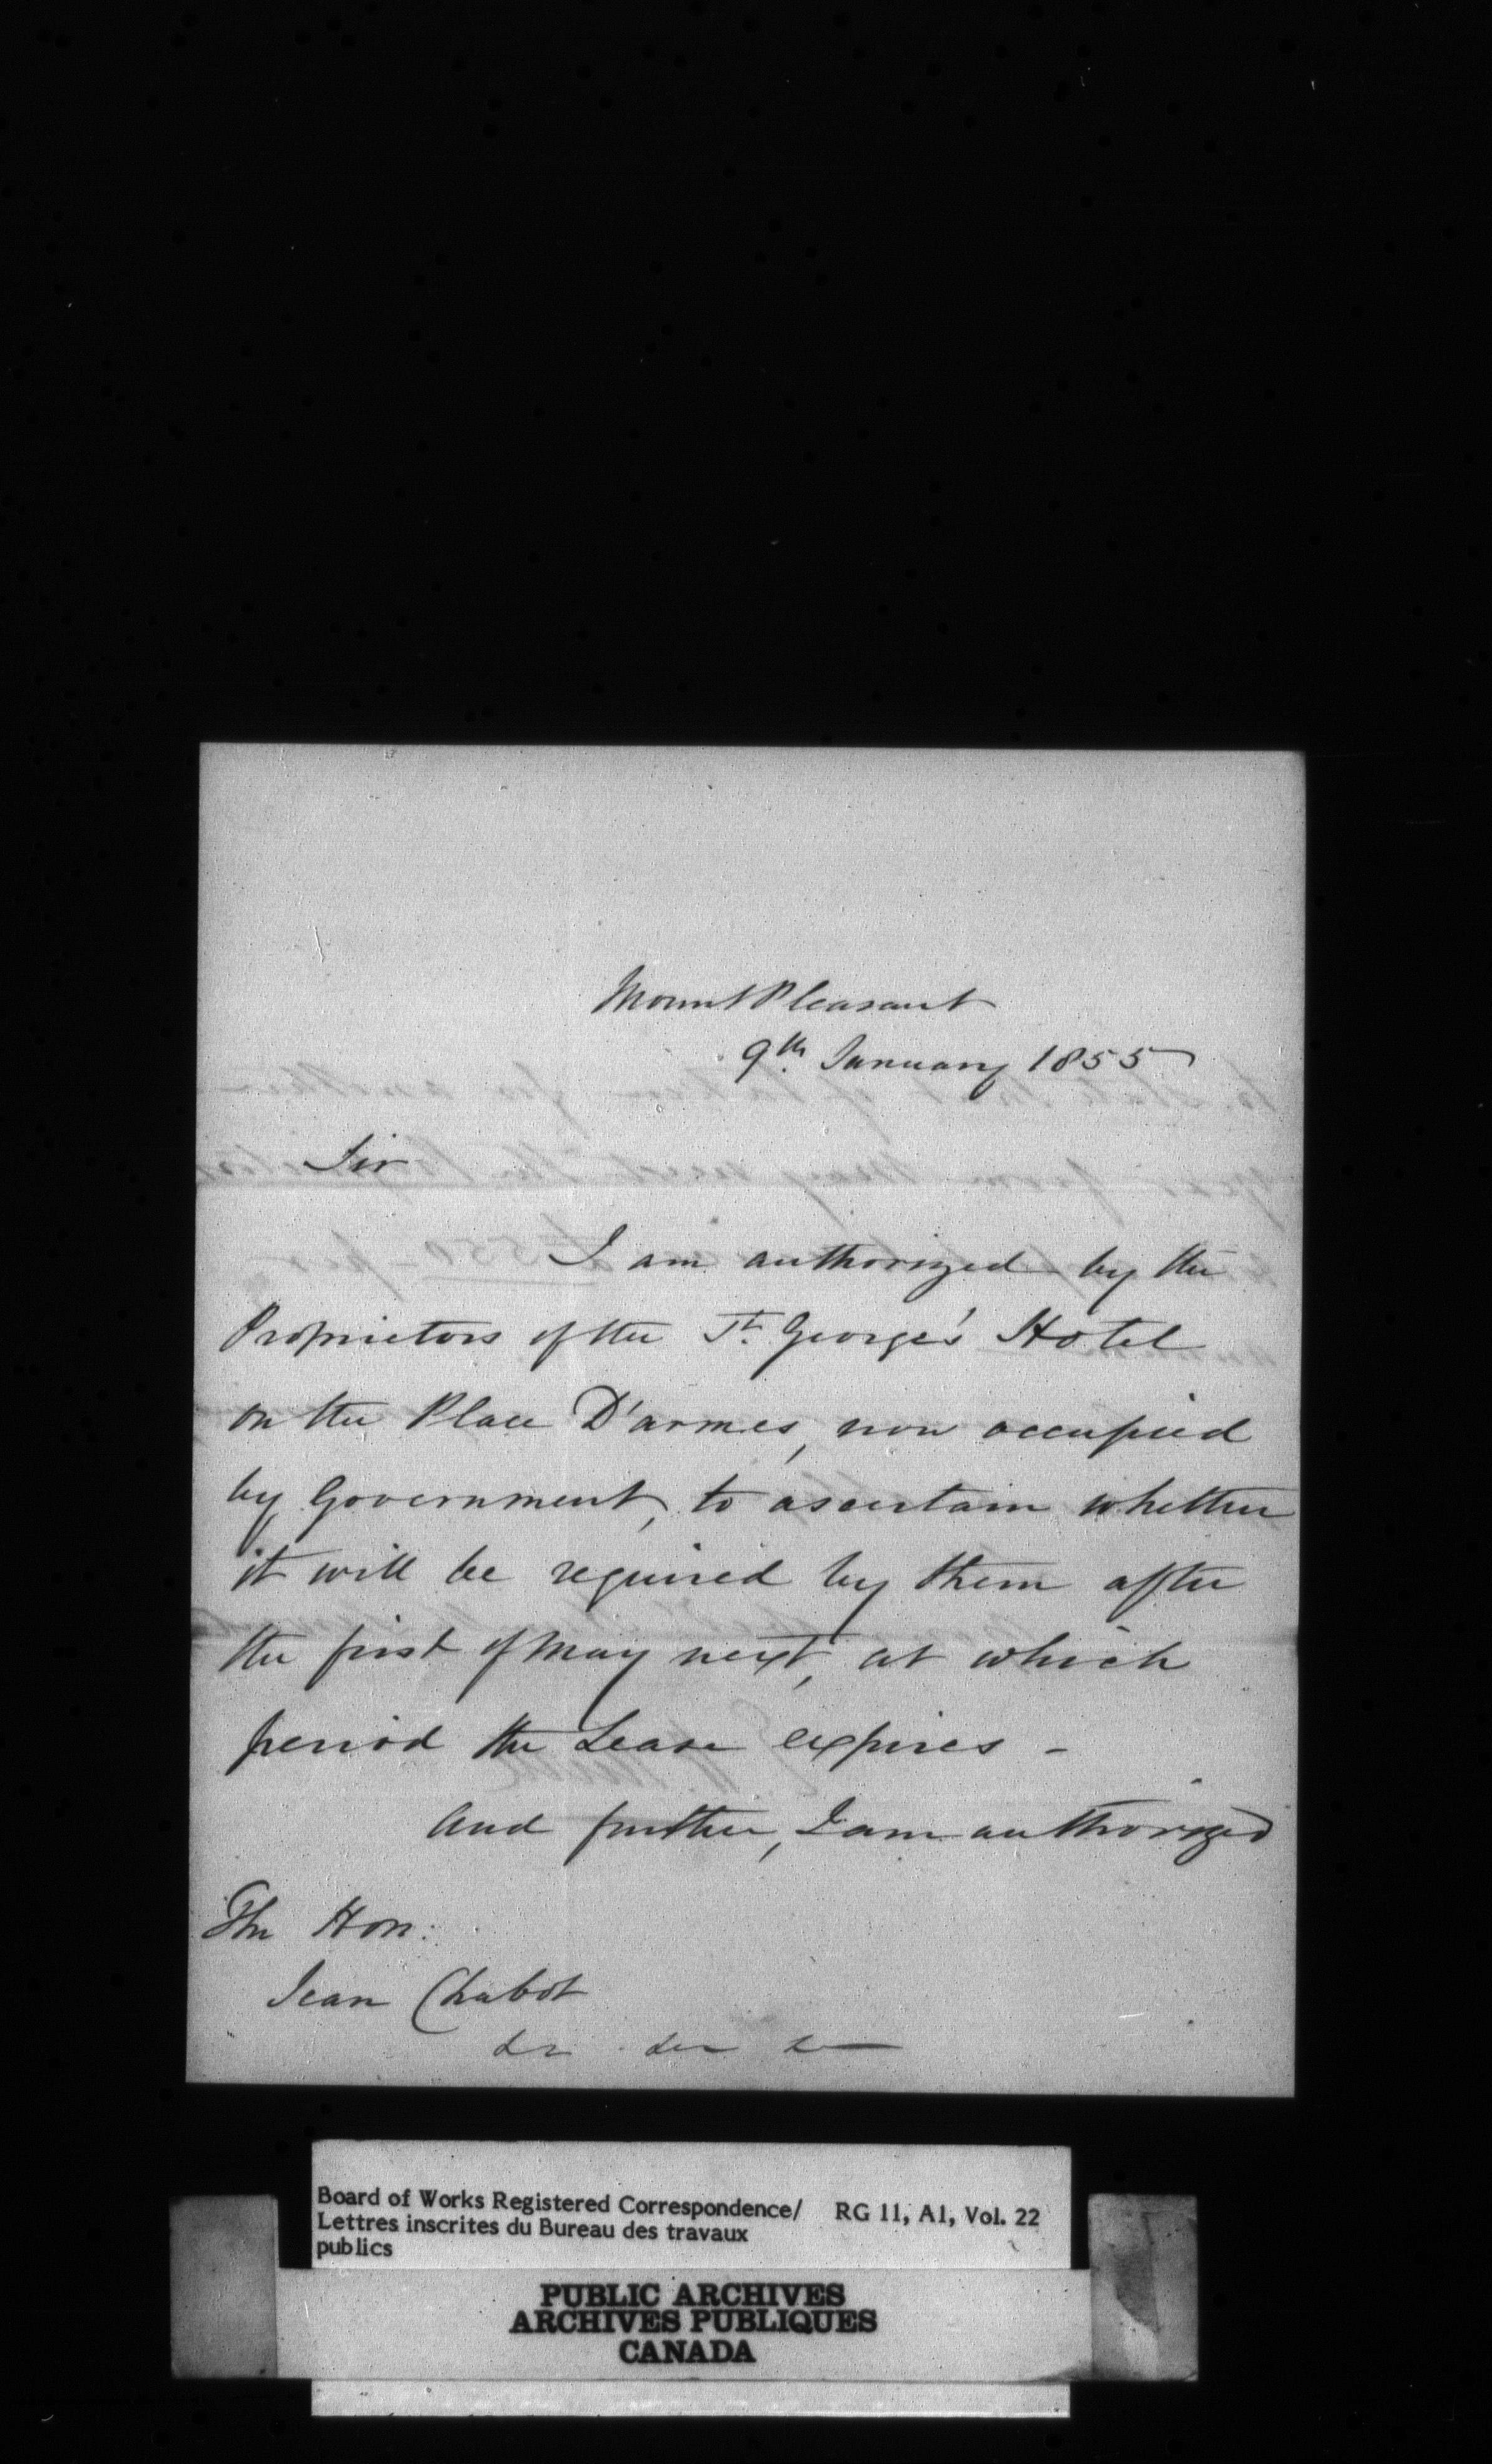 Mount Pleasant
9th January 1855
Sir
I am authorized by the
Proprietors of the St. George's Hotel
on the Place D'armes, now occupied
by Government, to ascertain whether
it will be required by them after
the first of May next, at which
period the Lease expires -
And further, I am authorized
The Hon:
Jean Chabot
Board of Works Registered Correspondence/ RG 11, A1, Vol. 22
Lettres inscrites du Bureau des travaux
publics
PUBLIC ARCHIVES
ARCHIVES PUBLIQUES
CANADA